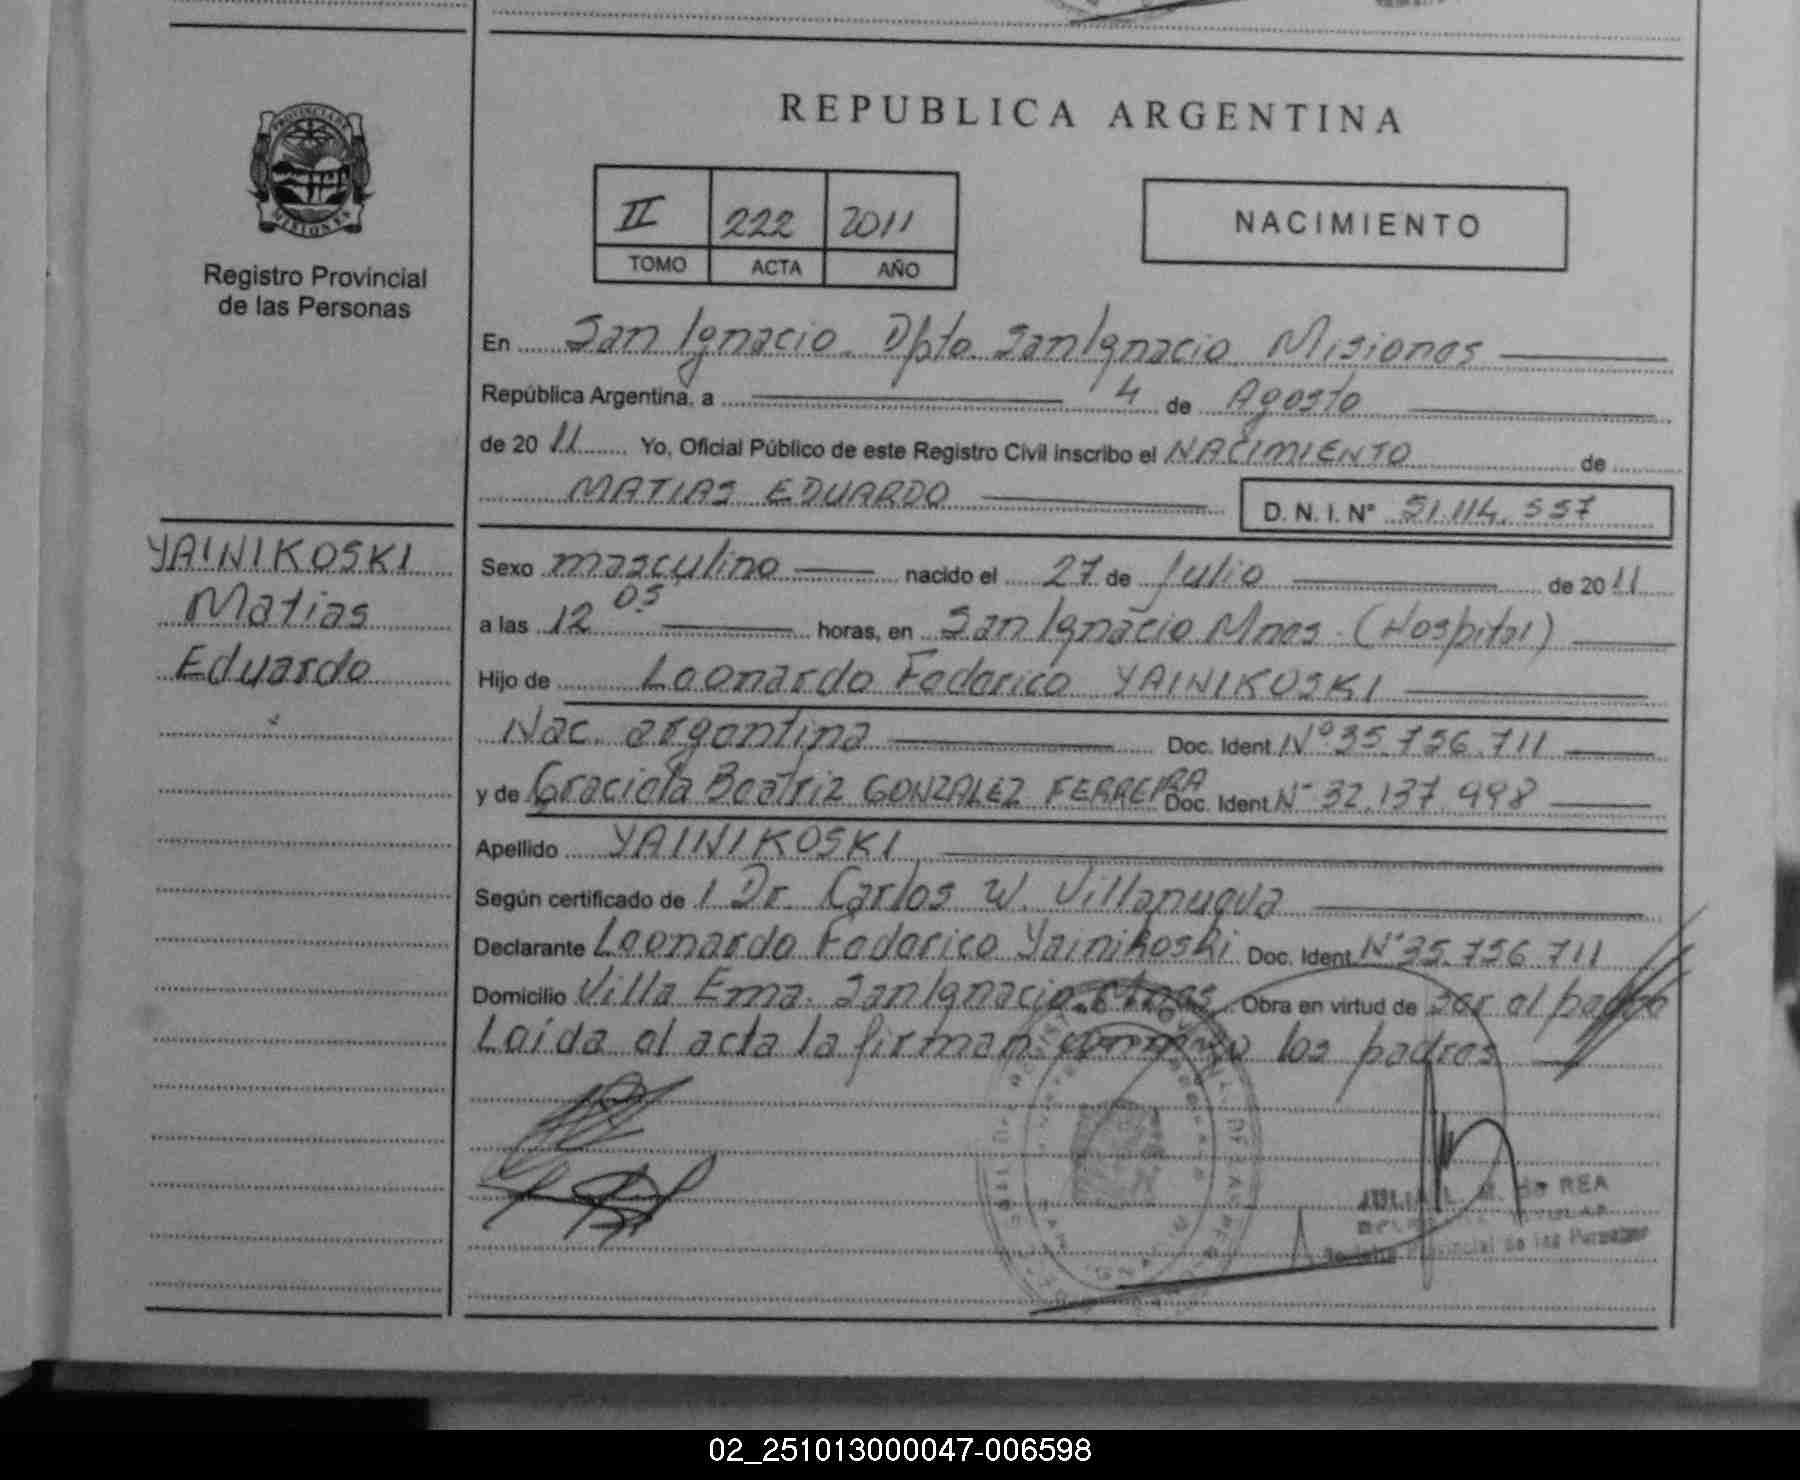 REPUBLICA ARGENTINA
PROVINCIA DE
MISIONES
Registro Provincial
de las Personas
II 222 2011
TOMO ACTA AÑO
NACIMIENTO
En San Ignacio Dpto. San Ignacio Misiones
República Argentina, a 4 de Agosto
de 20 11 Yo, Oficial Público de este Registro Civil inscribo el NACIMIENTO de
MATIAS EDUARDO D. N. I. Nº 51.114.557
YAINIKOSKI
Matias
Eduardo
Sexo masculino nacido el 27 de Julio de 20 11
a las 12 05 horas, en San Ignacio Mnes. (Hospital)
Hijo de Leonardo Federico YAINIKOSKI
Nac. argentina Doc. Ident Nº 35.756.711
y de Graciela Beatriz GONZALEZ FERREIRA Doc. Ident Nº 32.137.998
Apellido YAINIKOSKI
Según certificado de l Dr. Carlos W. Villanueva
Declarante Leonardo Federico Yainikoski Doc. Ident Nº 35.756.711
Domicilio Villa Ema. San Ignacio Mnes Obra en virtud de ser el padre
Leída el acta la firman conmigo los padres
JULIA L. M. de REA
Provincial de las Personas
02_251013000047-006598